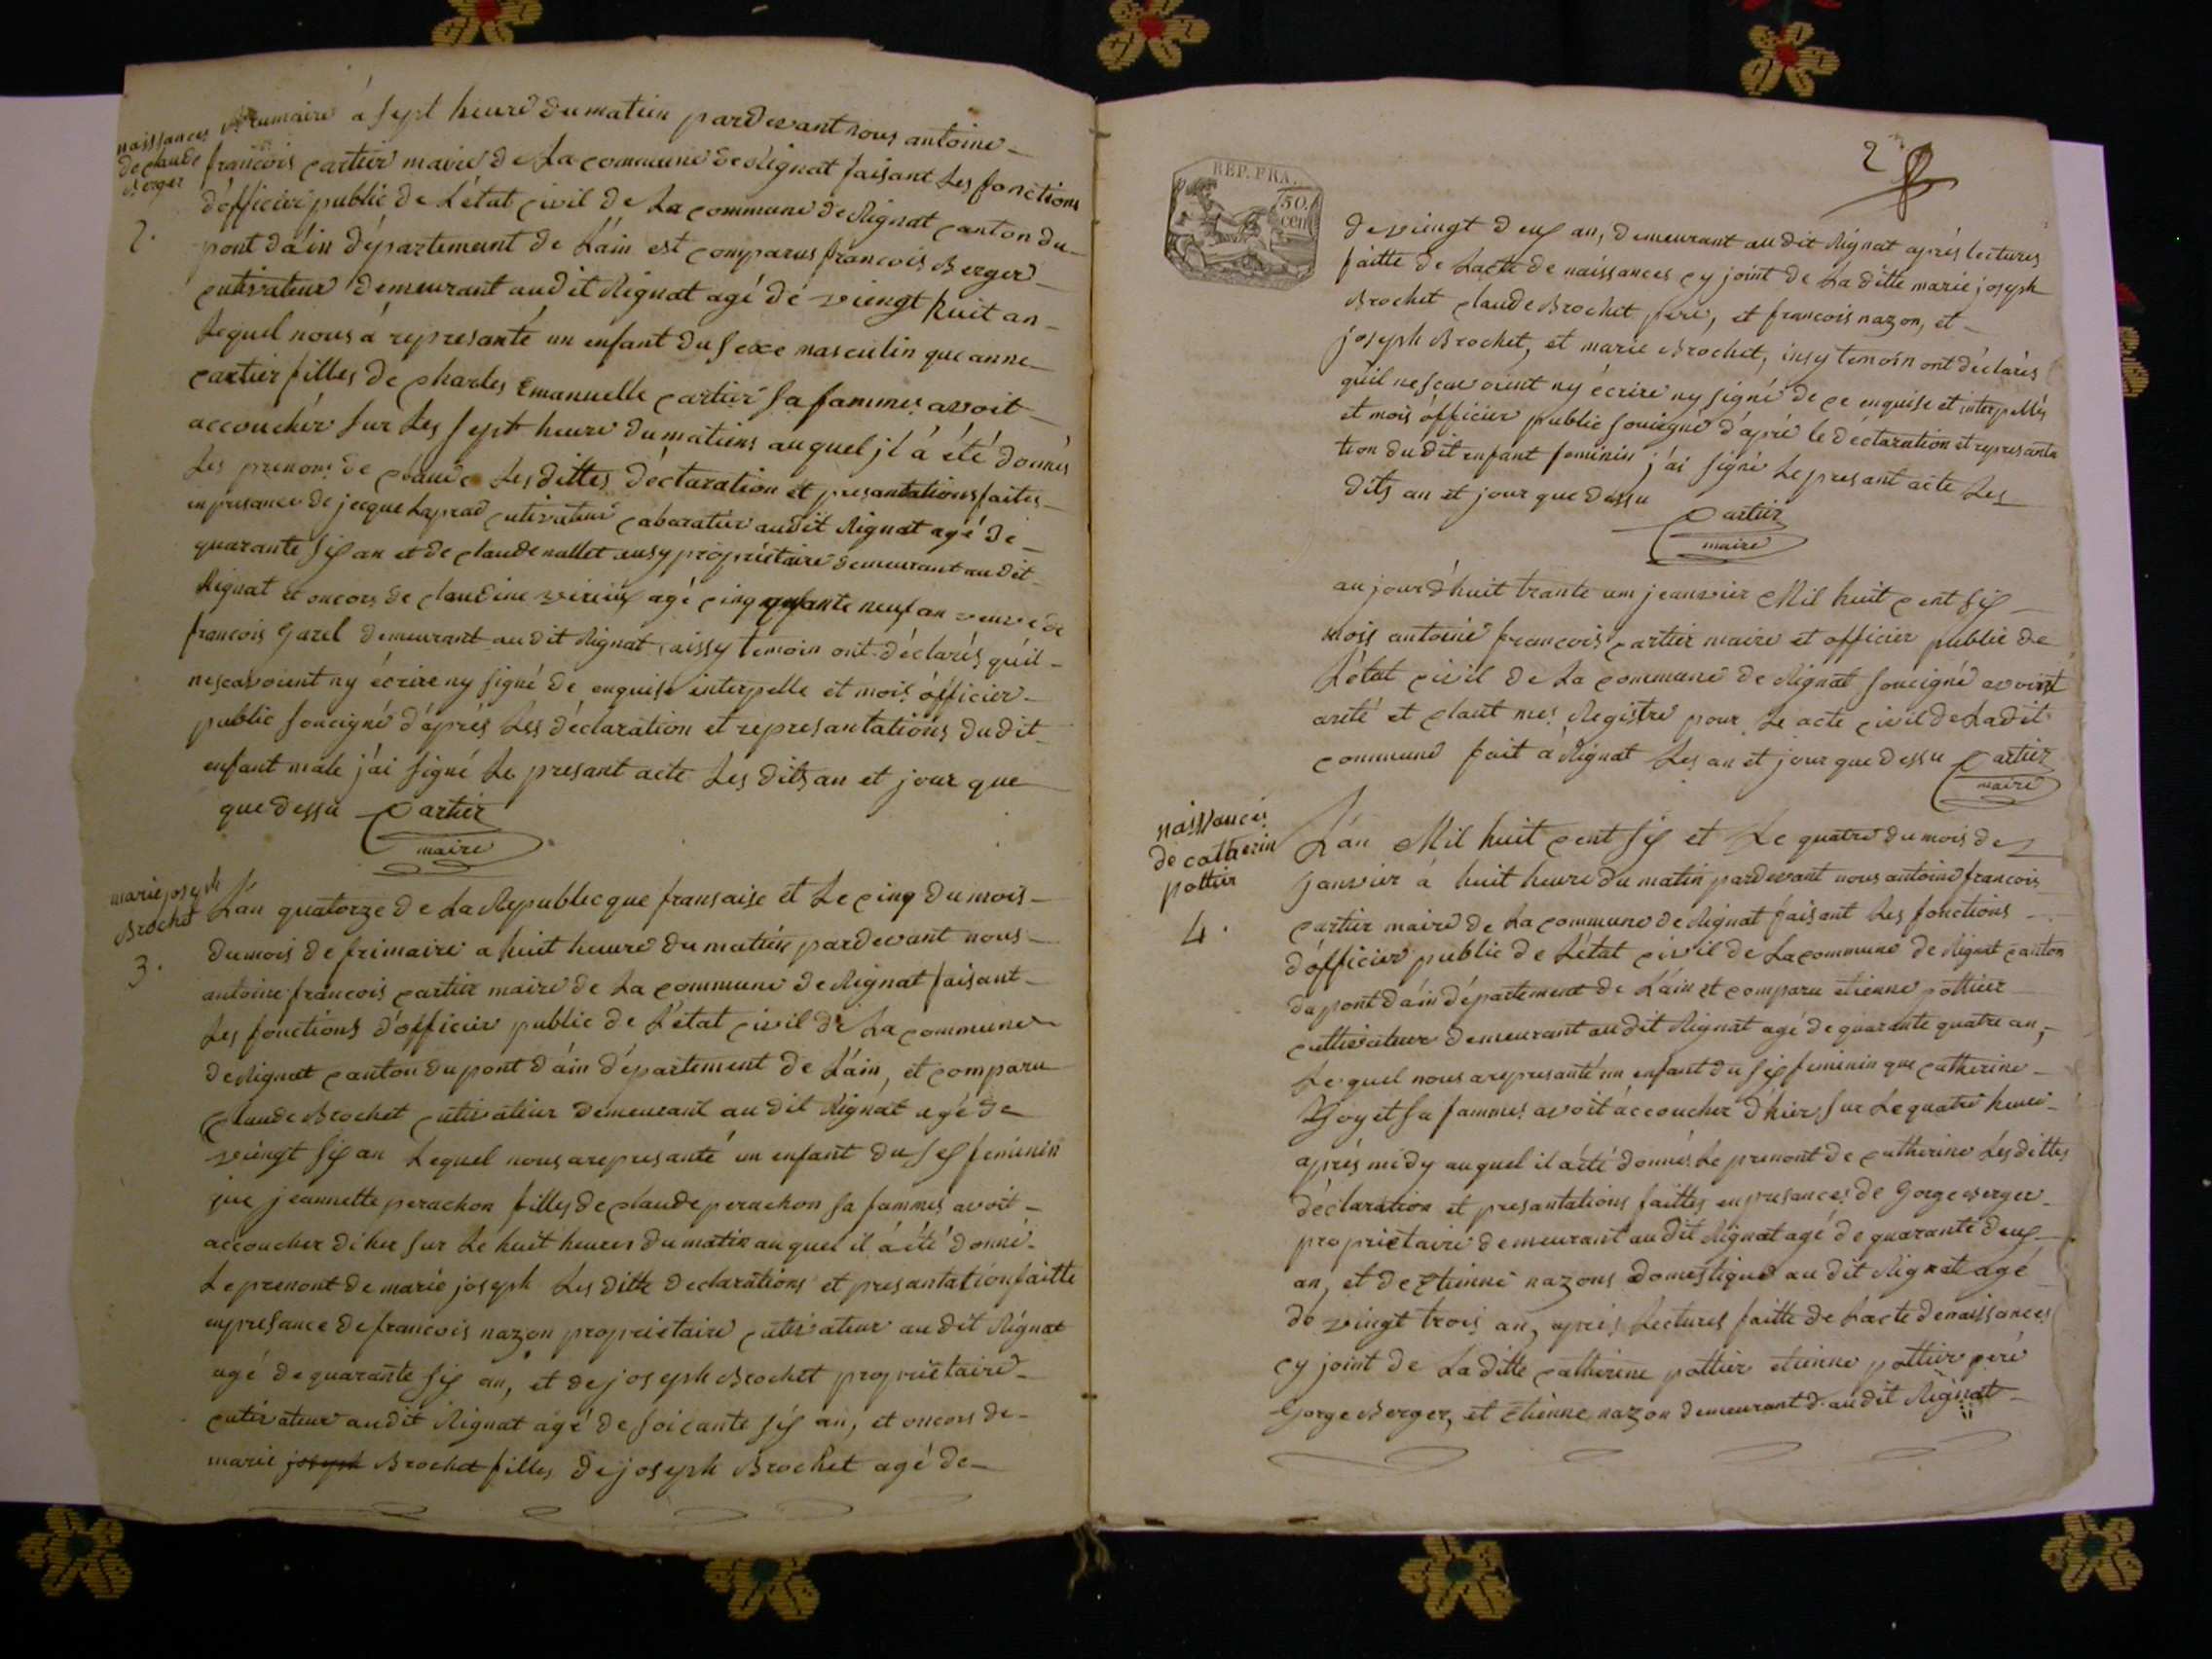 naissances
de claude
Berger
2.
Brumaire á sept heure du matin pardevant nous antoine
francois cartier maire de La commune de Rignat faisant Les fonctions
d'officier public de L'état civil de La commune de Rignat canton du
pont d'ain département de L'ain est comparus francois Berger
cutivateur demeurant audit Rignat agé de viengt huit an
Lequel nous á represanté un enfant du sexe masculin que anne
cartier filles de charles Emanuelle cartier sa fammes avoit
accoucher sur Les sept heure du matiens auquel jl á été donnés
Les prenoms de claude Les dittes déclaration et presantations faites
en presance de jacque Laprad cutivateur cabaratier audit Rignat agé de
quarante six an et de claude nallet ausy propriétaire demeurant audit
Rignat et oncors de claudine agé cinquante neuf an veuve de
francois Garel demeurant audit Rignat, aissy temoin ont déclarés qu'il
nescavoient ny écrire ny signé de enquise interpelle et mois officier
public soucigné d'áprés Les déclaration et represantations dudit
enfant male j'ai signé Le presant acte Les dits an et jour que
que dessu Cartier
maire
marie joseph
Brochet
3.
L'an quatorze de La Republecque fransaise et Le cinq du mois
du mois de frimaire a huit heure du matien pardevant nous
antoine francois cartier maire de La commune de Rignat faisant
Les fonctions d'officier public de L'état civil de La commune
de Rignat canton du pont d'ain département de L'ain, et comparu
claude Brochet cutivateur demeurant audit Rignat agé de
viengt six an Lequel nous a represanté un enfant du sex feminin
que jeannette perachon filles de claude perachon sa fammes avoit
accoucher d'hier sur Le huit heures du matin auquel il á été donné
Le prenont de marie joseph Les ditte declarations et presantation faitte
en presance de francois nazon propriétaire cutivateur audit Rignat
agé de quarante six an, et de joseph Brochet propriétaire
cutivateur audit Rignat agé de soicante six an, et oncors de
marie joseph Brochet filles de joseph Brochet agé de
2
REP. FRA.
50.
cent
de viengt deux an, demeurant audit Rignat aprés lectures
faitte de Lacte de naissances cy joint de La ditte marie joseph
Brochet claude Brochet pere, et francois nazon, et
joseph Brochet, et marie Brochet, insy temoin ont déclarés
qu'il nescavoient ny écrire ny signé de ce enquise et interpellés
et mois officier public soucigné d'áprés le déclaration et represanta
tion dudit enfant feminin j'ai signé Le presant acte Les
dits an et jour que dessu
Cartier
maire
au jourd'huit trante um jeanvier Mil huit cent six
mois antoine francois cartier maire et officier public de
L'état civil de La commune de Rignat soucigné avoint
areté et claut mes Registre pour Le acte civil de Ladit
commune fait á Rignat Les an et jour que dessu Cartier
maire
naissances
de catherin
pottier
4.
L'an Mil huit cent six et Le quatre du mois de
janvier á huit heure du matin pardevant nous antoine francois
cartier maire de La commune de Rignat faisant Les fonctions
d'officier public de L'état civil de La commune de Rignat canton
du pont d'ain département de L'ain et comparu etienne pottier
cultivateur demeurant audit Rignat agé de quarante quatre an,
Le quel nous a represanté un enfant du six feminin que catherine
Goyet sa fammes avoit áccoucher d'hier sur Le quatre heure
aprés midy auquel il á été donnés Le prenont de catherine Les dittes
déclaration et presantations faittes en presances de Gorge Berger
propriétaire demeurant audit Rignat agé de quarante deux
an, et de Etienne nazons domestique audit Rignat agé
de vingt trois an, aprés Lectures faitte de Lacte de naissances
cy joint de La ditte catherine pottier etienne pottier pere
Gorge Berger, et Etienne nazon demeurant d. audit Rignat